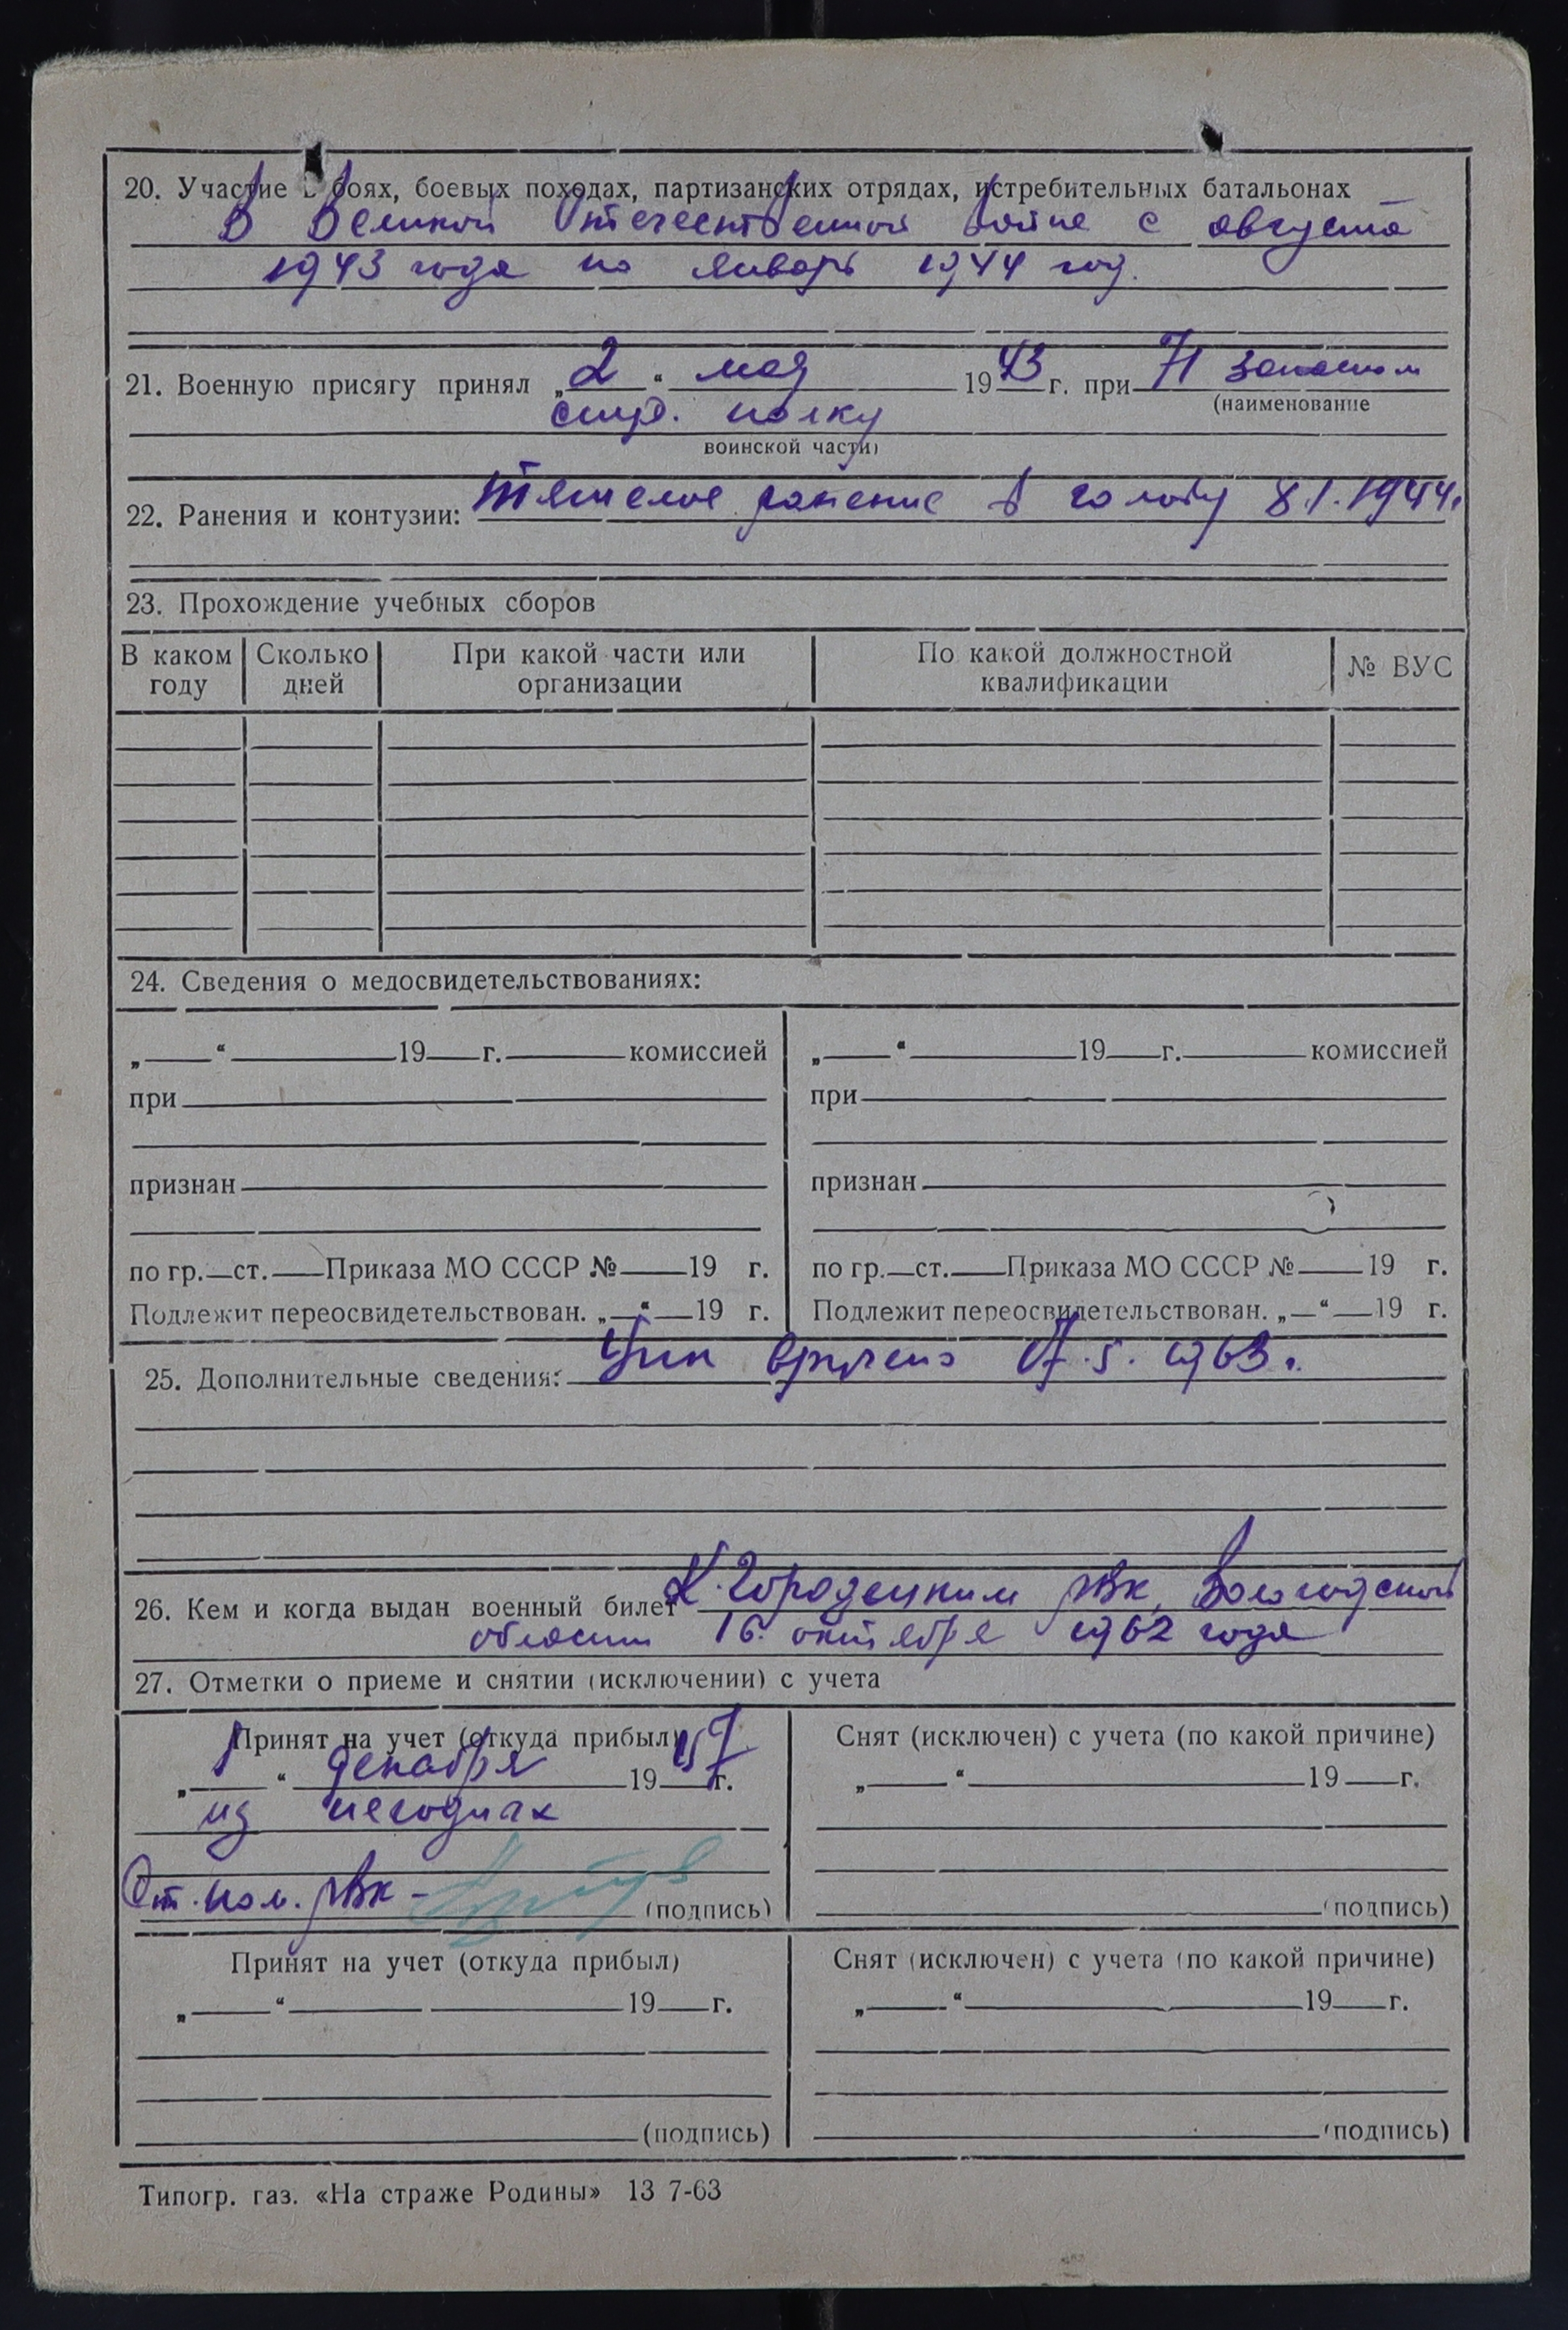 20. Участие в боях, боевых походах, партизанских отрядах, истребительных батальонах
В Великой Отечественной войне с августа
1943 года по январь 1944 год.
21. Военную присягу принял „ 2 “ мая 19 43 г. при 71 запасном
(наименование
стр. полку
воинской части)
22. Ранения и контузии: Тяжелое ранение в голову 8.1.1944г.
23. Прохождение учебных сборов
В каком году
Сколько дней
При какой части или организации
По какой должностной квалификации
№ ВУС
24. Сведения о медосвидетельствованиях:
„ “ 19 г. комиссией
при
признан
по гр. ст. Приказа МО СССР № 19 г.
Подлежит переосвидетельствован. „ “ 19 г.
„ “ 19 г. комиссией
при
признан
по гр. ст. Приказа МО СССР № 19 г.
Подлежит переосвидетельствован. „ “ 19 г.
25. Дополнительные сведения: вручено 17.5.1963г.
26. Кем и когда выдан военный билет К.Городецким рвк, Вологодской
области 16 октября 1962 года
27. Отметки о приеме и снятии (исключении) с учета
Принят на учет (откуда прибыл)
„ 1 “ декабря 19 57 г.
из негодных
Ст. пом. рвк - (подпись)
Снят (исключен) с учета (по какой причине)
„ “ 19 г.
(подпись)
Принят на учет (откуда прибыл)
„ “ 19 г.
(подпись)
Снят (исключен) с учета (по какой причине)
„ “ 19 г.
(подпись)
Типогр. газ. «На страже Родины» 13 7-63